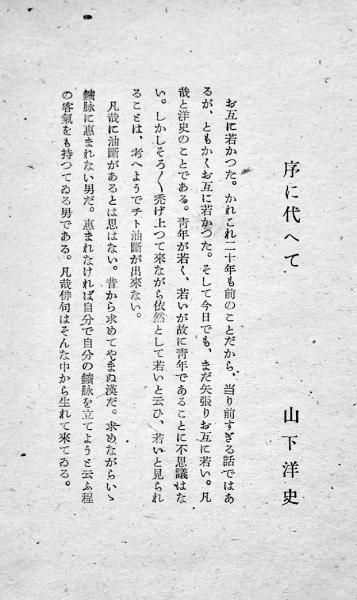 序に代へて
山下洋史
お互に若かつた。かれこれ二十年も前のことだから、当り前すぎる話ではあ
るが、ともかくお互に若かつた。そして今日でも、まだ矢張りお互に若い。凡
哉と洋史のことである。青年が若く、若いが故に青年であることに不思議はな
い。しかしそろ〳〵禿げ上つて来ながら依然として若いと云ひ、若いと見られ
ることは、考へようでチト油断が出来ない。
凡哉に油断があるとは思はない。昔から求めてやまぬ漢だ。求めながらいゝ
鑛脉に恵まれない男だ。恵まれなければ自分で自分の鑛脉を立てようと云ふ程
の客氣をも持つてゐる男である。凡哉俳句はそんな中から生れて来てゐる。